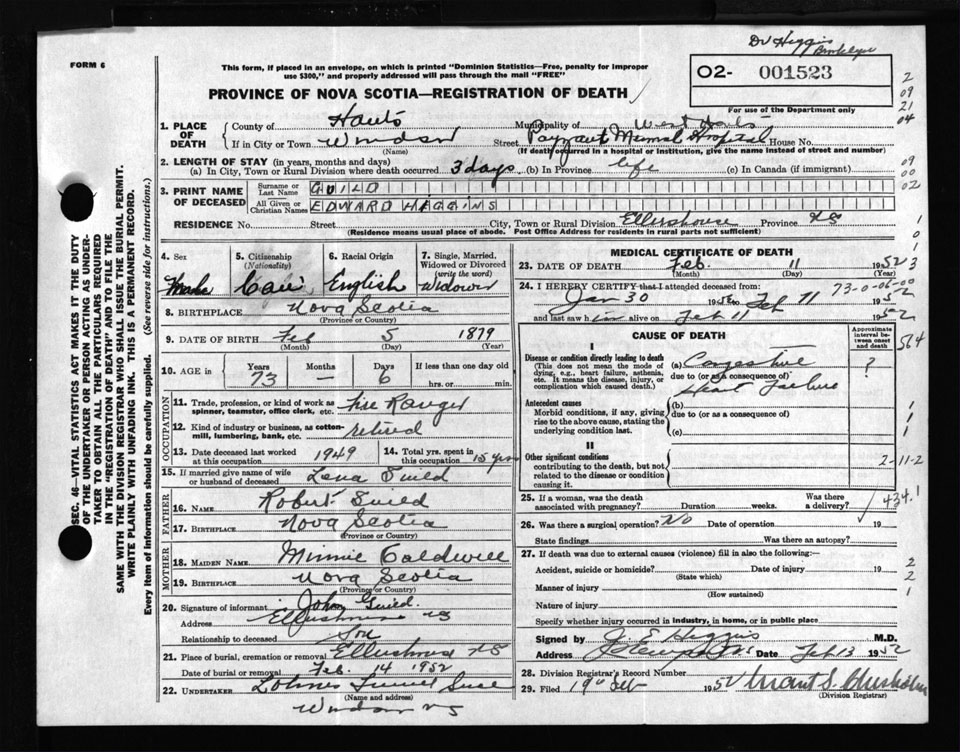 Dr Higgins
Brooklyn
FORM 6
This form, if placed in an envelope, on which is printed "Dominion Statistics—Free, penalty for improper
use $300," and properly addressed will pass through the mail "FREE"
O2- 001523
For use of the Department only
PROVINCE OF NOVA SCOTIA—REGISTRATION OF DEATH
2
09
21
04
09
00
02
1. PLACE OF DEATH
County of Hants Municipality of West Hants
If in City or Town Windsor Street Payzant Memorial Hospital House No.
(Name) (If death occurred in a hospital or institution, give the name instead of street and number)
2. LENGTH OF STAY (in years, months and days)
(a) In City, Town or Rural Division where death occurred 3 days (b) In Province life (c) In Canada (if immigrant)
3. PRINT NAME OF DECEASED
Surname or Last Name GUILD
All Given or Christian Names EDWARD HIGGINS
RESIDENCE No. Street City, Town or Rural Division Ellershouse Province NS
(Residence means usual place of abode. Post Office Address for residents in rural parts not sufficient)
SEC. 46—VITAL STATISTICS ACT MAKES IT THE DUTY
OF THE UNDERTAKER OR PERSON ACTING AS UNDER-
TAKER TO OBTAIN ALL THE PARTICULARS REQUIRED
IN THE "REGISTRATION OF DEATH" AND TO FILE THE
SAME WITH THE DIVISION REGISTRAR WHO SHALL ISSUE THE BURIAL PERMIT.
WRITE PLAINLY WITH UNFADING INK. THIS IS A PERMANENT RECORD.
Every item of information should be carefully supplied. (See reverse side for instructions.)
4. Sex Male
5. Citizenship (Nationality) Can
6. Racial Origin English
7. Single, Married, Widowed or Divorced (write the word) Widower
8. BIRTHPLACE Nova Scotia
(Province or Country)
9. DATE OF BIRTH Feb 5 1879
(Month) (Day) (Year)
10. AGE in Years 73 Months — Days 6 If less than one day old
hrs. or min.
OCCUPATION
11. Trade, profession, or kind of work as
spinner, teamster, office clerk, etc. Fire Ranger
12. Kind of industry or business, as cotton-
mill, lumbering, bank, etc. retired
13. Date deceased last worked
at this occupation 1949
14. Total yrs. spent in
this occupation 15 yrs
15. If married give name of wife
or husband of deceased Lena Guild
FATHER
16. NAME Robert Guild
17. BIRTHPLACE Nova Scotia
(Province or Country)
MOTHER
18. MAIDEN NAME Minnie Caldwell
19. BIRTHPLACE Nova Scotia
(Province or Country)
20. Signature of informant John Guild.
Address Ellershouse NS
Relationship to deceased Son
21. Place of burial, cremation or removal Ellershouse NS
Date of burial or removal Feb 14 1952
22. UNDERTAKER Lohnes Funeral
(Name and address)
Windsor NS
MEDICAL CERTIFICATE OF DEATH
23. DATE OF DEATH Feb. 11 1952
(Month) (Day) (Year)
1
0
1
3
24. I HEREBY CERTIFY that I attended deceased from:
73-0-06-00
Jan 30 1952 to Feb 11 1952
and last saw him alive on Feb 11 1952
564
CAUSE OF DEATH
Approximate interval between onset and death
I
Disease or condition directly leading to death
(This does not mean the mode of
dying, e.g., heart failure, asthenia,
etc. It means the disease, injury, or
complication which caused death.)
(a) Congestive ?
due to (or as a consequence of)
Heart Failure
Antecedent causes
Morbid conditions, if any, giving
rise to the above cause, stating the
underlying condition last.
(b)
due to (or as a consequence of)
(c)
1
1
II
Other significant conditions
contributing to the death, but not
related to the disease or condition
causing it.
2-11-2
25. If a woman, was the death
associated with pregnancy? Duration weeks. Was there
a delivery?
434.1
26. Was there a surgical operation? No Date of operation 19
State findings Was there an autopsy?
27. If death was due to external causes (violence) fill in also the following:—
Accident, suicide or homicide? Date of injury 19
(State which)
2
2
1
Manner of injury
(How sustained)
Nature of injury
Specify whether injury occurred in industry, in home, or in public place
Signed by J E Higgins M.D.
Address Date Feb 13 1952
28. Division Registrar's Record Number
29. Filed 19" Feb 1952 Grant S. Chisholm
(Division Registrar)